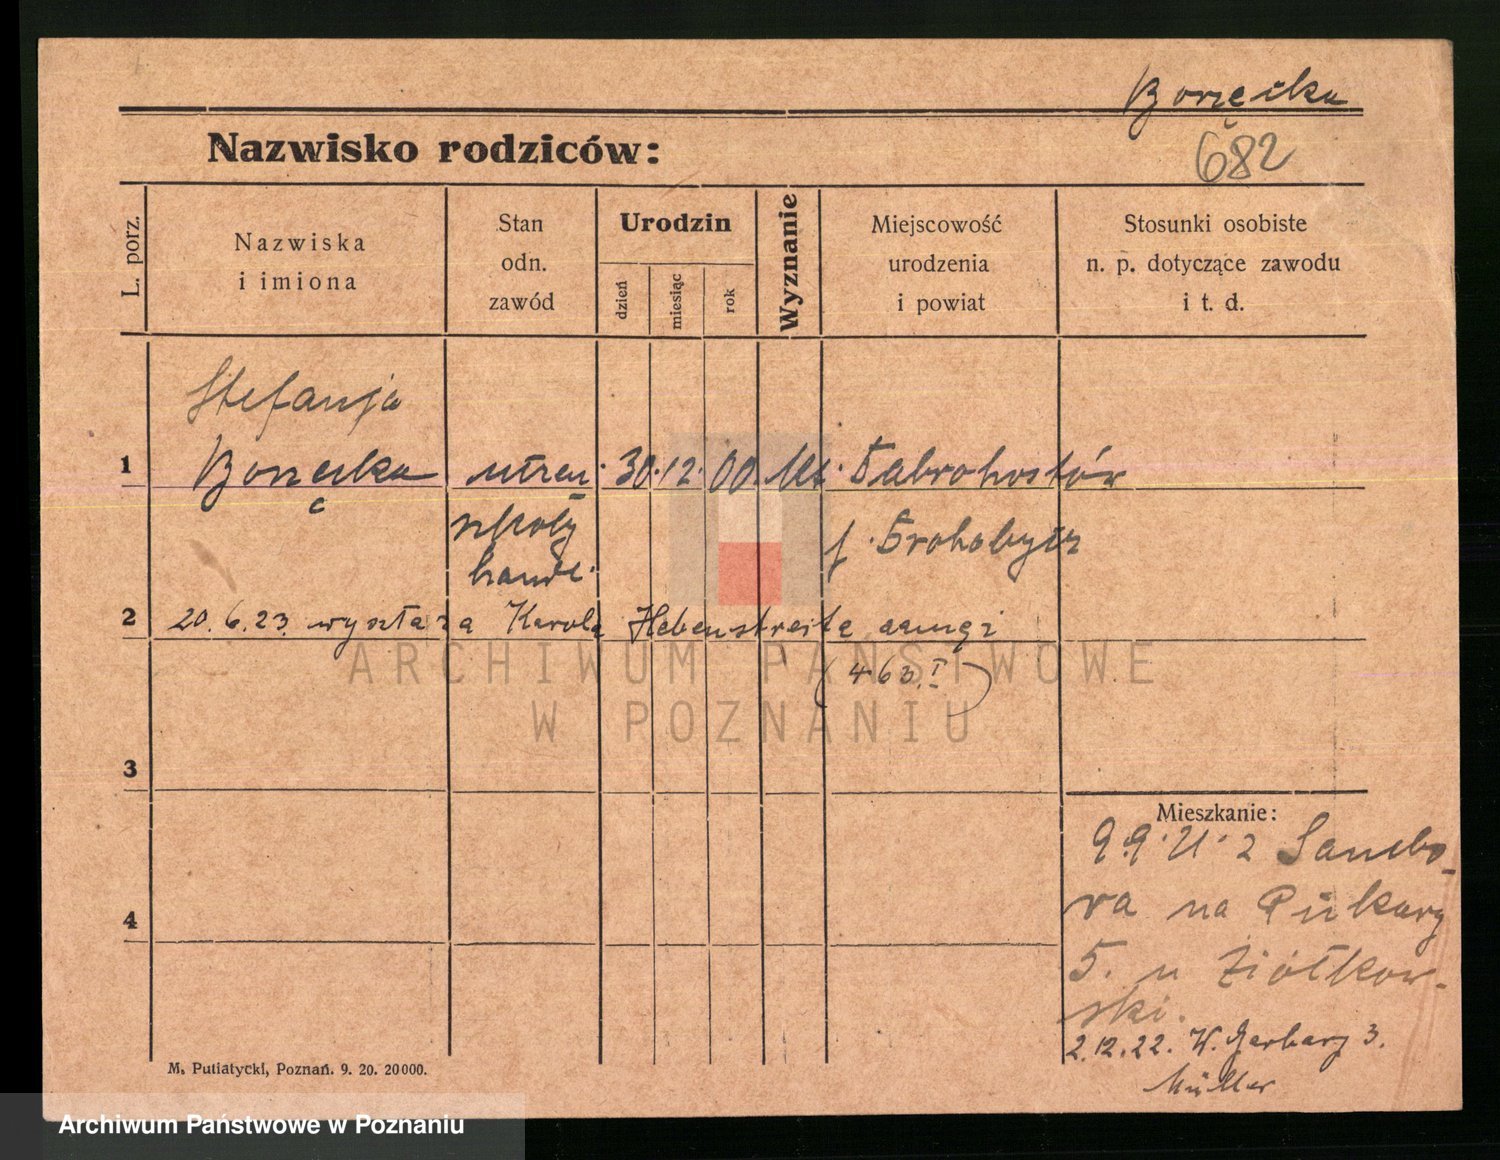 Borzęcka
682
Nazwisko rodziców:
L. porz.
Nazwiska
i imiona
Stan
odn.
zawód
Urodzin
dzień
miesiąc
rok
Wyznanie
Miejscowość
urodzenia
i powiat
Stosunki osobiste
n. p. dotyczące zawodu
i t. d.
Stefanja
1 Borzęcka 30. 12. 00.
szkoły
handl.
2 20. 6. 23. wyszła za Karola Hebenstreita
(463 I)
ARCHIWUM PAŃSTWOWE
W POZNANIU
3
Mieszkanie:
z Sambo-
4 ra na Piekary
5. u Ziółkow-
ski.
2.12.22. W. Garbary 3.
Müller
M. Putiatycki, Poznań. 9. 20. 20000.
Archiwum Państwowe w Poznaniu